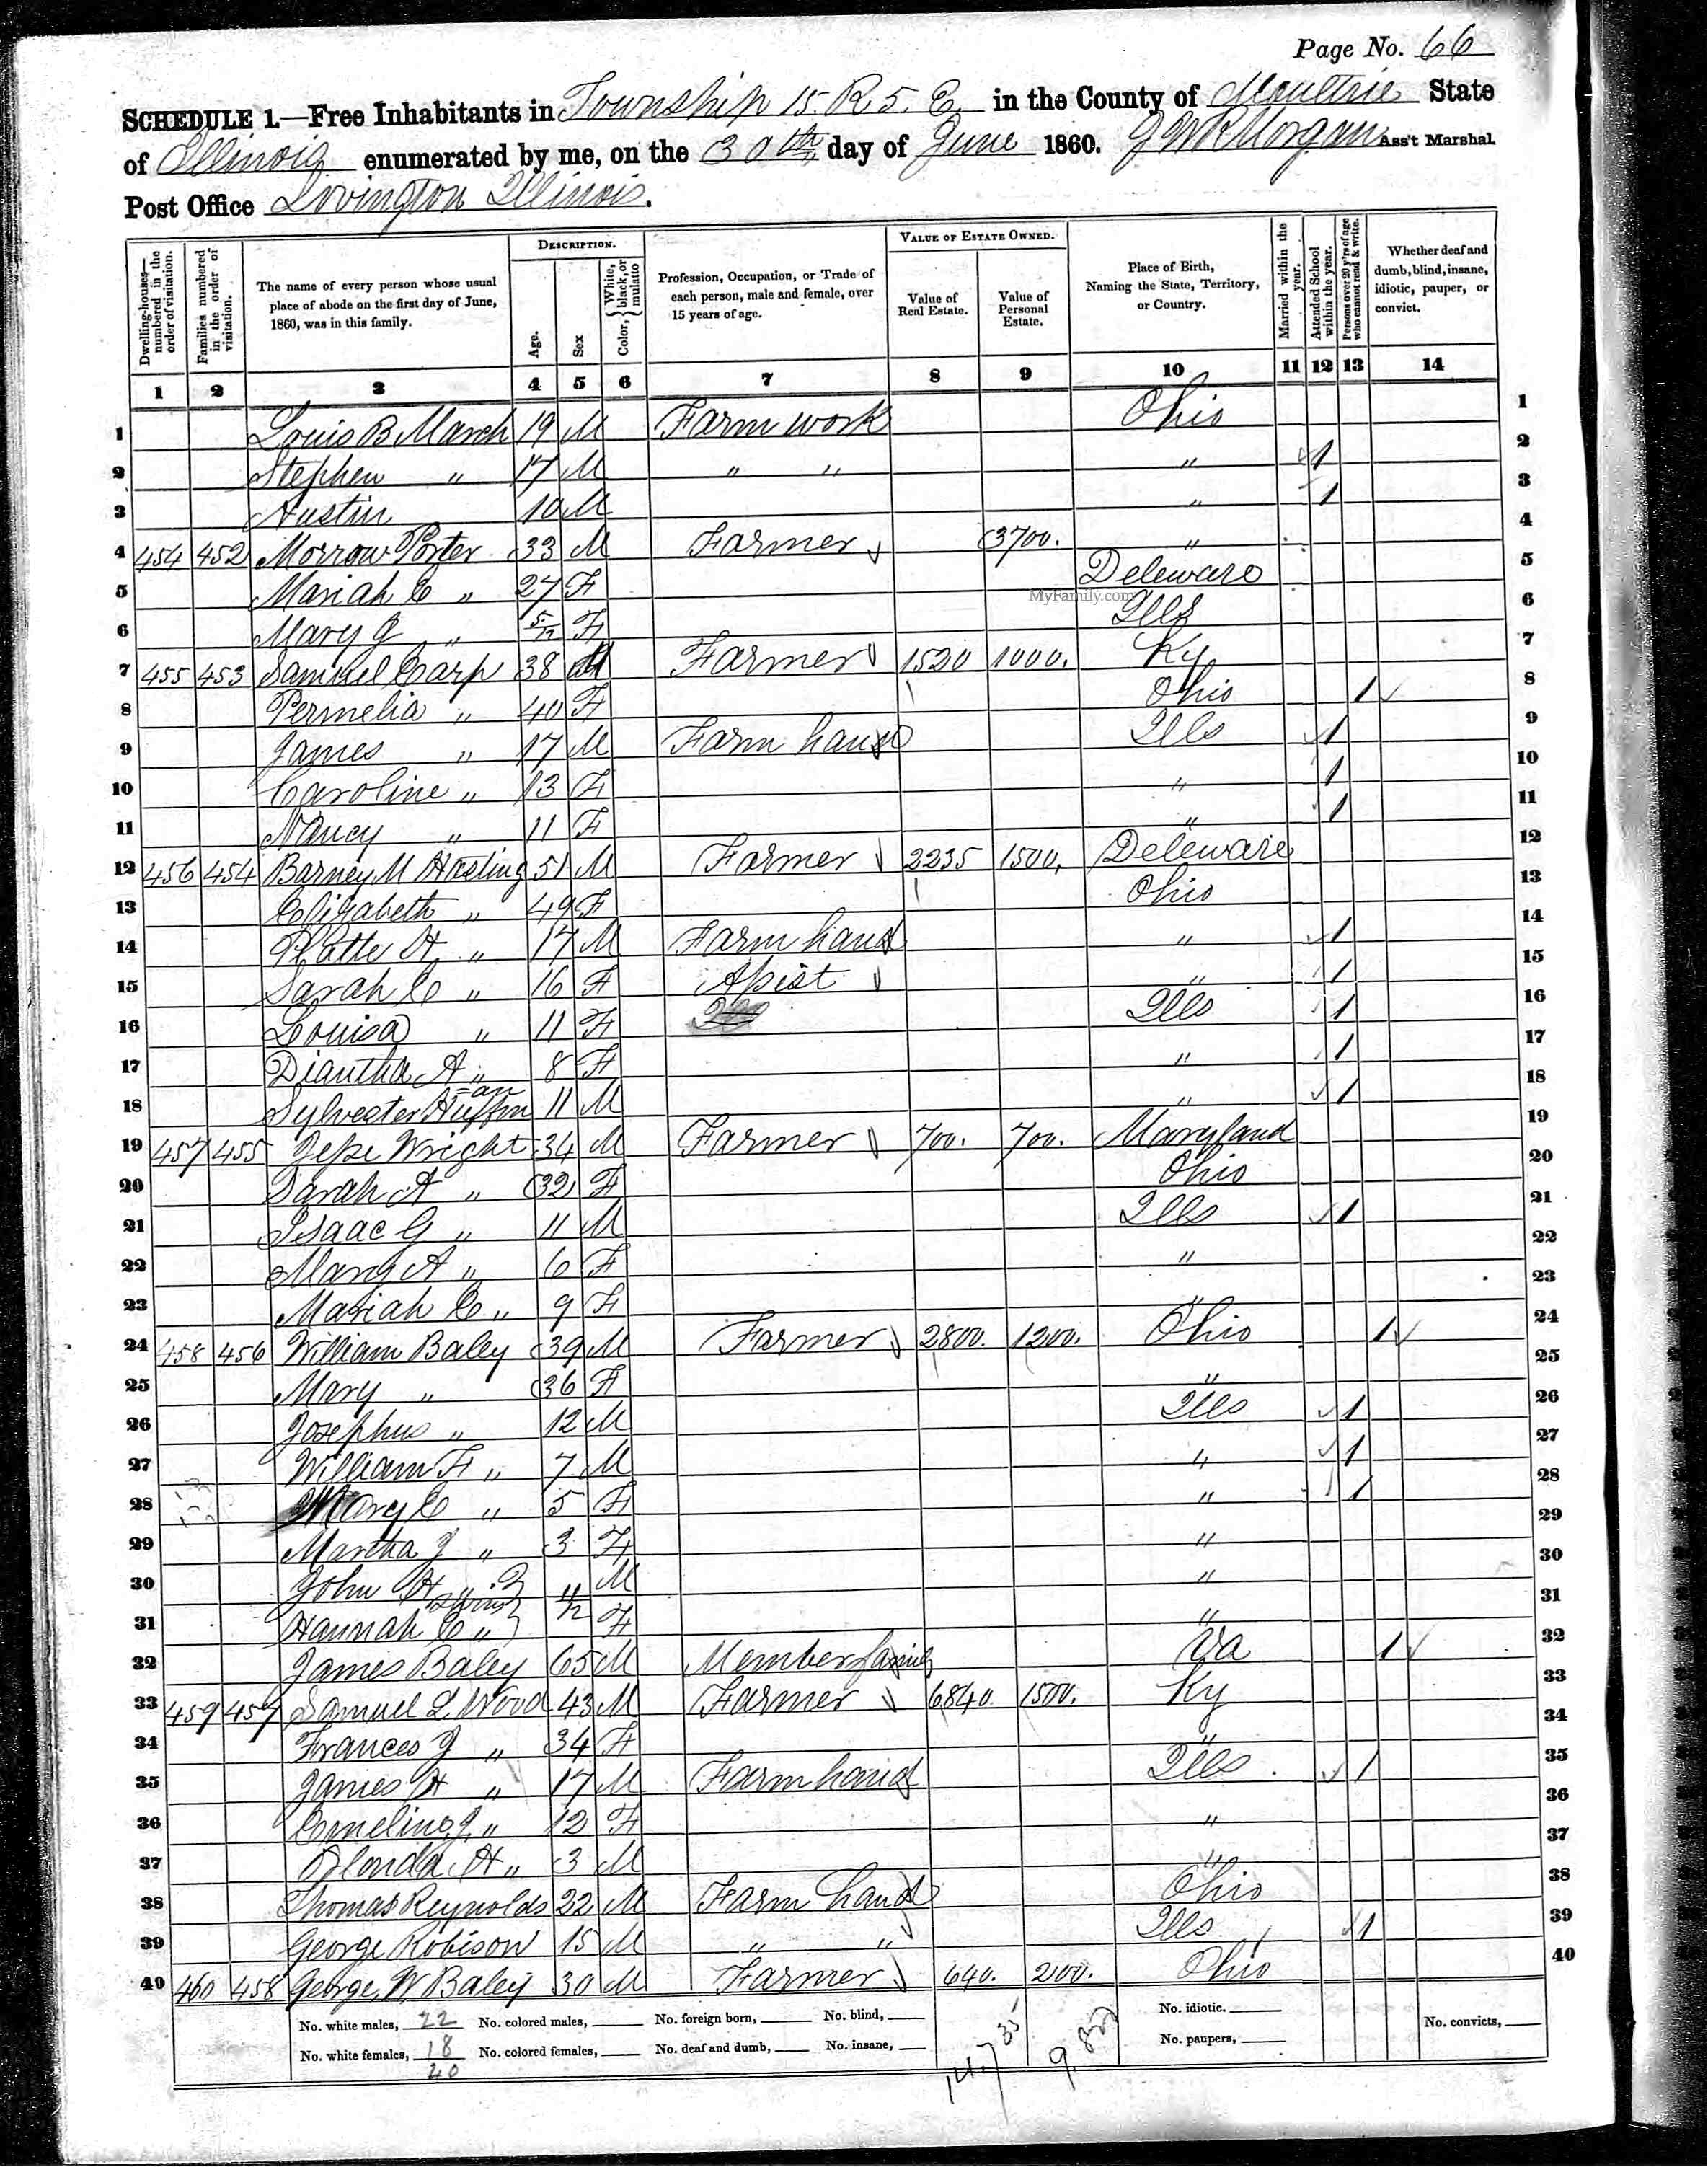 Page No. 66
SCHEDULE 1.—Free Inhabitants in Township 15. R 5. E. in the County of Moultrie State
of Illinois enumerated by me, on the 30th day of June 1860. J W R Morgan Ass't Marshal
Post Office Lovington Illinois.
Dwelling-houses—numbered in the order of visitation.
Families numbered in the order of visitation.
The name of every person whose usual place of abode on the first day of June, 1860, was in this family.
DESCRIPTION.
Age.
Sex
Color, { White, black, or mulatto
Profession, Occupation, or Trade of each person, male and female, over 15 years of age.
VALUE OF ESTATE OWNED.
Value of Real Estate.
Value of Personal Estate.
Place of Birth, Naming the State, Territory, or Country.
Married within the year.
Attended School within the year.
Persons over 20 y'rs of age who cannot read & write.
Whether deaf and dumb, blind, insane, idiotic, pauper, or convict.
1 2 3 4 5 6 7 8 9 10 11 12 13 14
1 Louis B March 19 M Farm work Ohio 1
2 Stephen " 17 M " " " 1 2
3 Austin 10 M " 1 3
4 454 452 Morrow Porter 33 M Farmer 3700. " 4
5 Mariah C " 27 F Deleware 5
MyFamily.com
6 Mary J " 5/12 F Ills 6
7 455 453 Samuel Carp 38 M Farmer 1520 1000. Ky 7
8 Permelia " 40 F Ohio 1 8
9 James " 17 M Farm hand Ills 1 9
10 Caroline " 13 F " 1 10
11 Nancy " 11 F " 1 11
12 456 454 Barney M 51 M Farmer 2235 1500, Deleware 12
13 Elizabeth " 49 F Ohio 13
14 H. " 17 M Farm hand " 1 14
15 Sarah C " 16 F Asist " 1 15
16 Louisa " 11 F Ills 1 16
17 Diantha A " 8 F " 1 17
18 Sylvester Huffm=an 11 M " 1 18
19 457 455 Jesse Wright 34 M Farmer 700. 700. Maryland 19
20 Sarah A " 32 F Ohio 20
21 Isaac G " 11 M Ills 1 21
22 Mary A " 6 F " 22
23 Mariah C " 9 F " 23
24 458 456 William Baley 39 M Farmer 2800. 1200. Ohio 1 24
25 Mary " 36 F " 25
26 Josephus " 12 M Ills 1 26
27 William F " 7 M " 1 27
28 Mary C " 5 F " 1 28
29 Martha J " 3 F " 29
30 John H " 11/12 M " 30
31 Hannah C " F " 31
32 James Baley 65 M Member family Va 1 32
33 459 457 Samuel L Wood 43 M Farmer 6840. 1500. Ky 33
34 Frances J " 34 F " 34
35 James H " 17 M Farm hand Ills 1 35
36 J. " 12 F " 36
37 H " 3 M " 37
38 Thomas Reynolds 22 M Farm hand Ohio 38
39 George Robison 15 M " " Ills 1 39
40 460 458 George W Baley 30 M Farmer 640. 200. Ohio 40
No. white males, 22 No. colored males, No. foreign born, No. blind, No. idiotic. No. convicts,
No. white females, 18 No. colored females, No. deaf and dumb, No. insane, No. paupers,
40